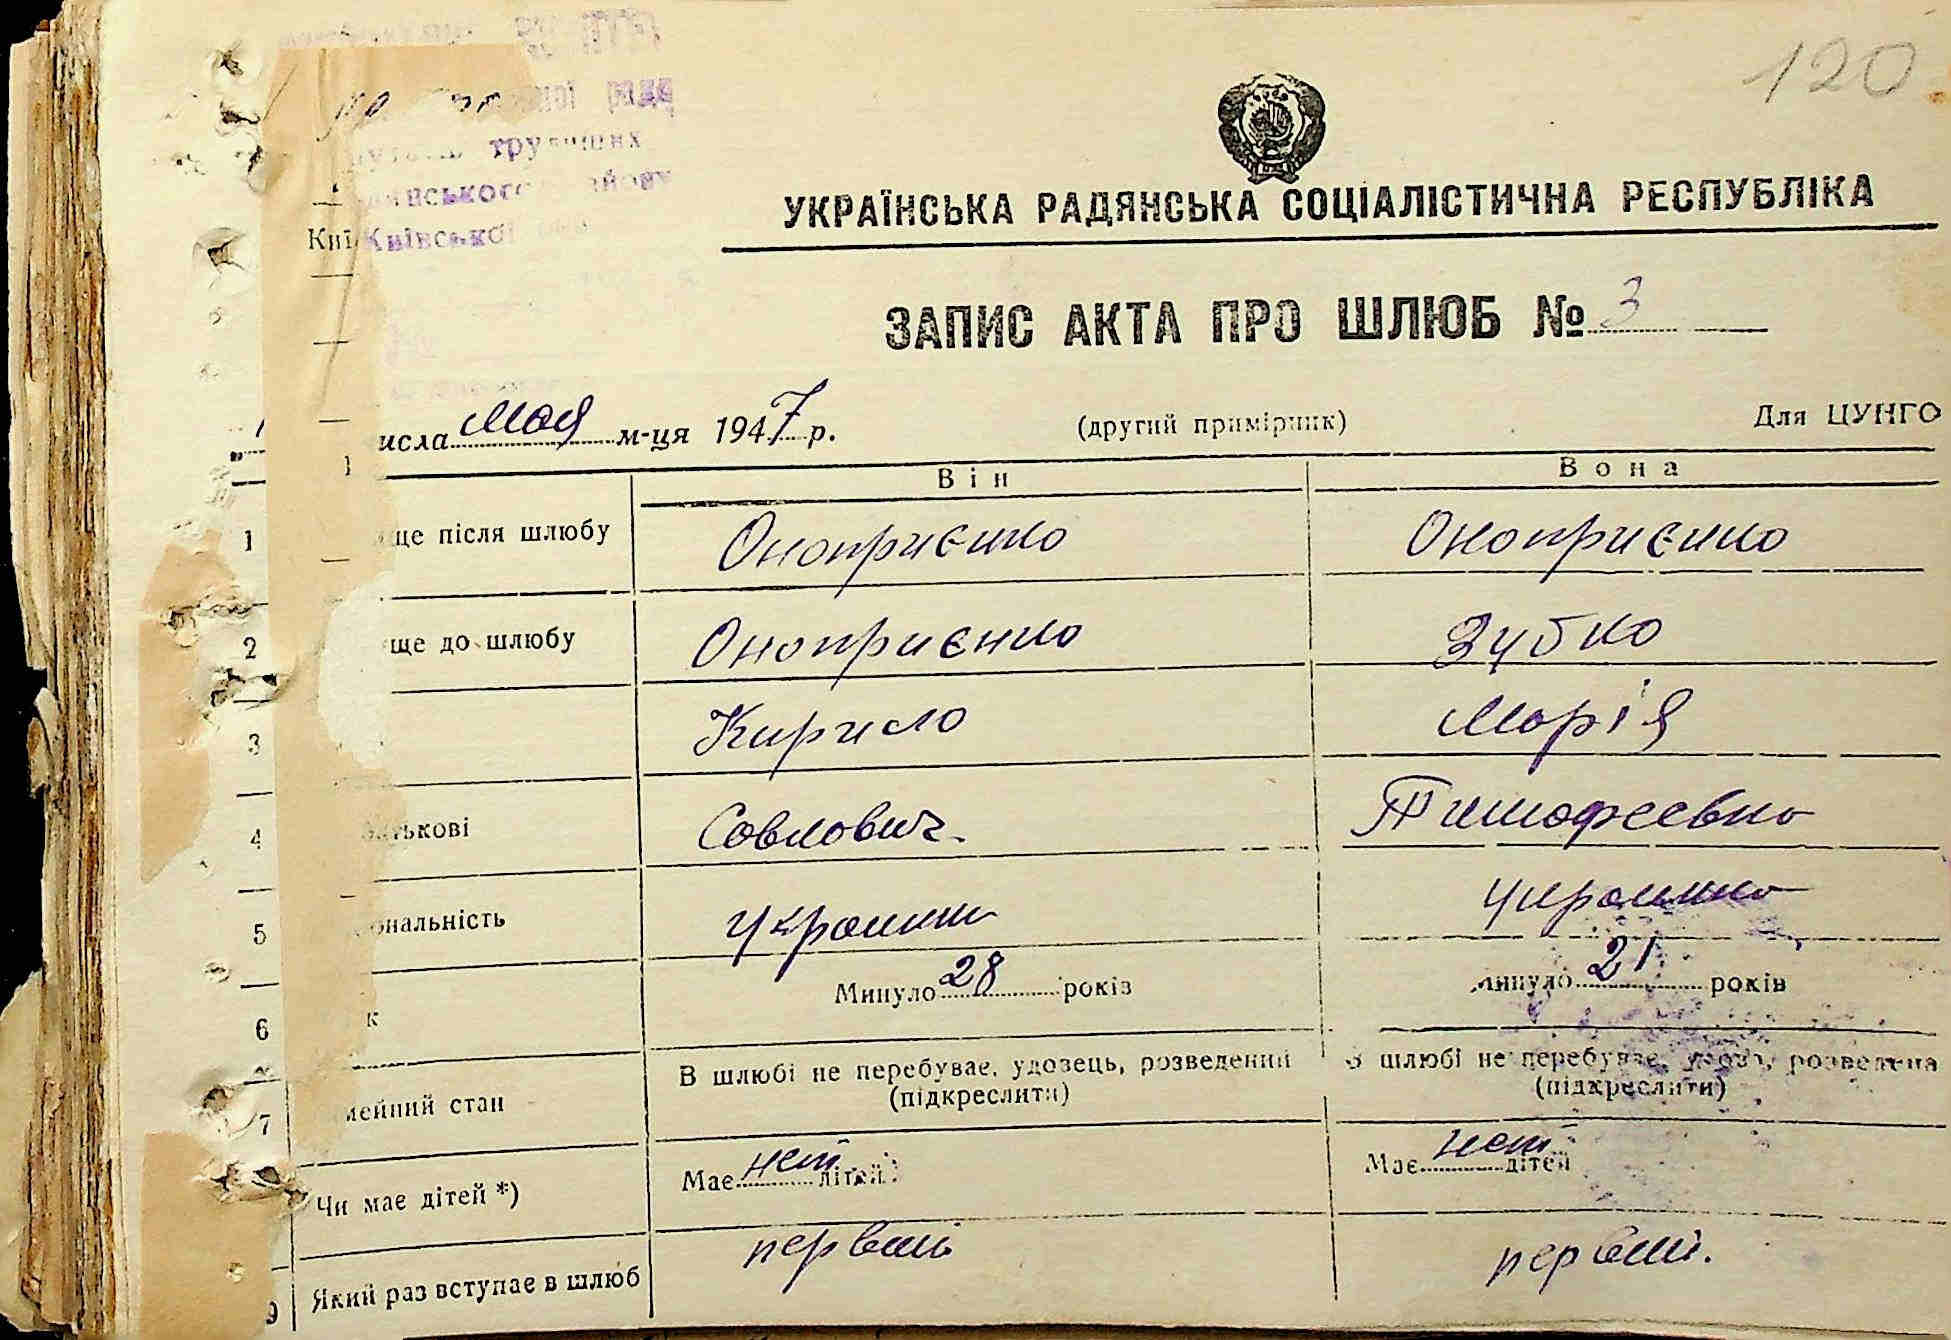 120
ної ради
трудящих
Київської
УКРАЇНСЬКА РАДЯНСЬКА СОЦІАЛІСТИЧНА РЕСПУБЛІКА
ЗАПИС АКТА ПРО ШЛЮБ № 3
исла мая м-ця 1947 р. (другий примірник) Для ЦУНГО
Він Вона
1 ще після шлюбу Оноприєнко Оноприєнко
2 ще до шлюбу Оноприєнко Зубко
3 Кирило Марія
4 батькові Савлович Тимофеевна
5 ональність украинц украинка
6 к Минуло 28 років Минуло 21 років
7 мейний стан В шлюбі не перебуває, удовець, розведений (підкреслити) В шлюбі не перебуває, удова, розведена (підкреслити)
Чи має дітей *) Має нет дітей Має нет дітей
9 Який раз вступає в шлюб первий первий.